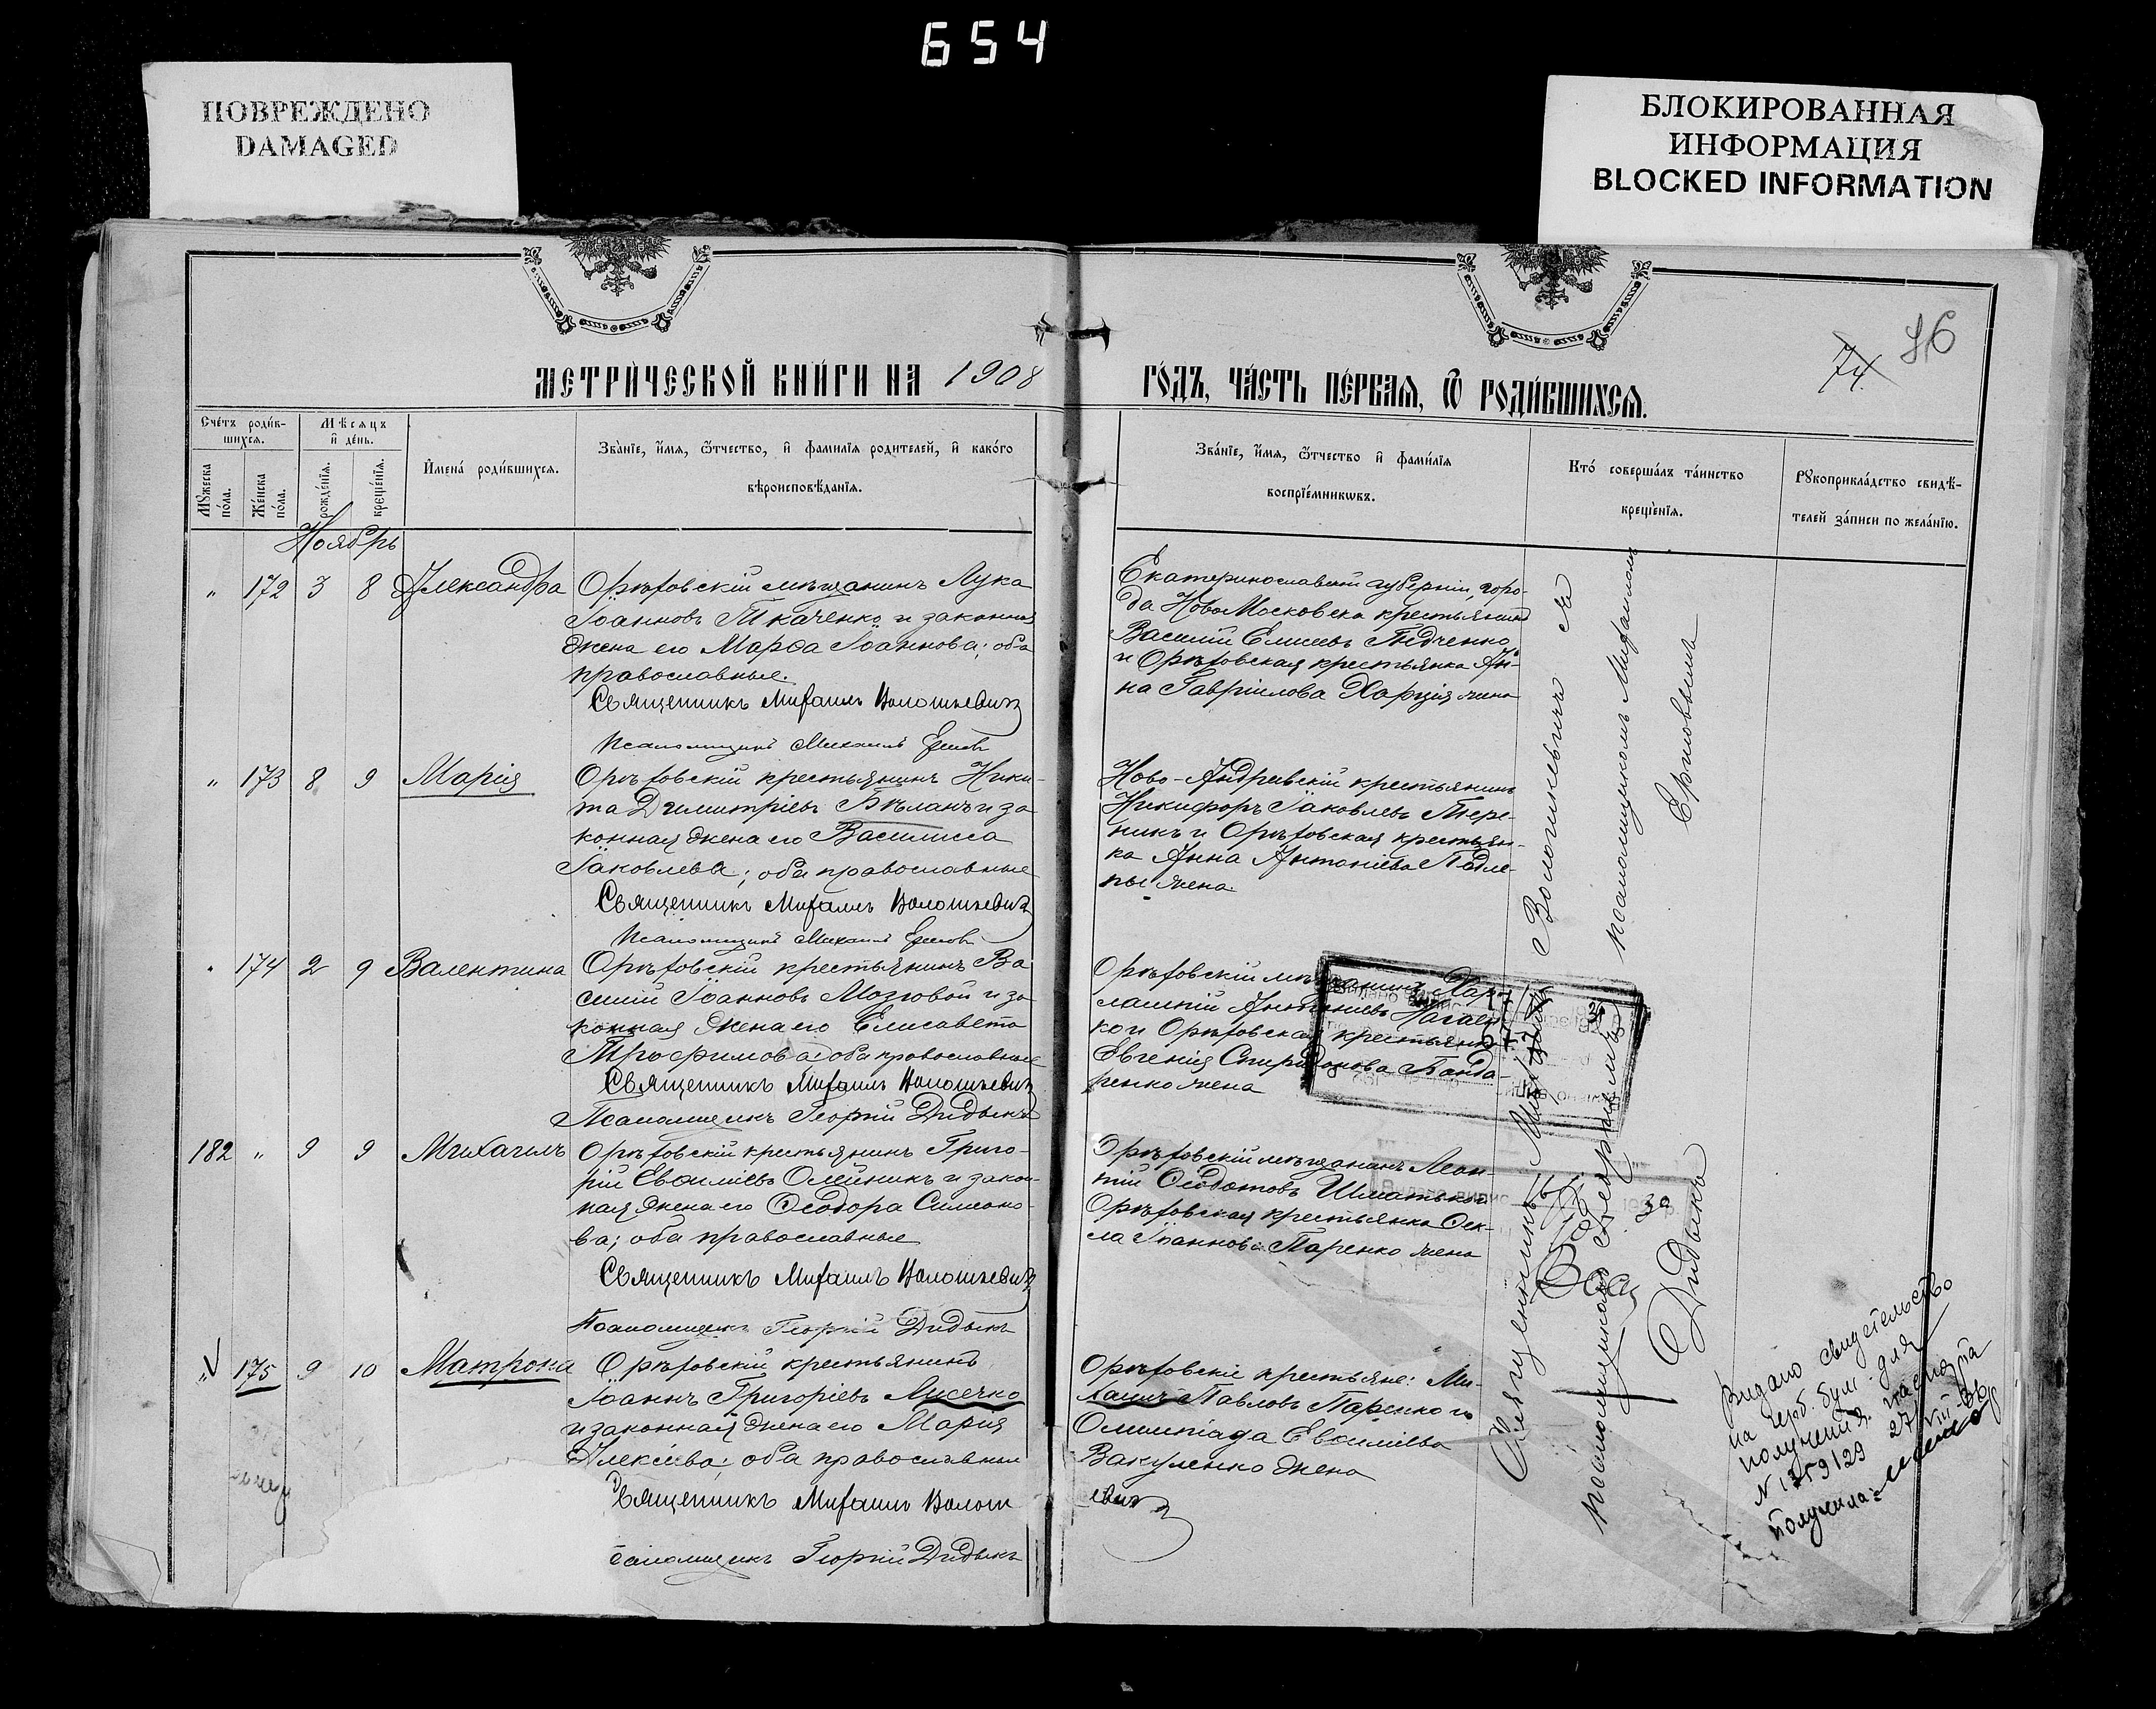 654
ПОВРЕЖДЕНО
DAMAGED
БЛОКИРОВАННАЯ
ИНФОРМАЦИЯ
BLOCKED INFORMATION
МЕТРИЧЕСКОЙ КНИГИ НА 1908
ГОДЪ, ЧАСТЬ ПЕРВАЯ, Ѿ РОДИВШИХСЯ.
74
76
Счетъ родив-
шихся.
Мѣсяцъ
и день.
Мужеска
пола.
Женска
пола.
рожденія.
крещенія.
Имена родившихся.
Званіе, имя, ѿтчество, и фамилія родителей, и какого
вѣроисповѣданія.
Званіе, имя, ѿтчество и фамилія
воспріемникѡвъ.
Кто совершалъ таинство
крещенія.
Рукоприкладство свидѣ-
телей записи по желанію.
Ноябрь
" 172 3 8 Александра Орѣховскій мѣщанинъ Лука
Іоанновъ Ткаченко и законная
жена его Марѳа Іоаннова; оба
православные.
Священникъ Михаилъ Волошкевичъ
Псаломщикъ Михаилъ Ершовъ
Екатеринославской губерніи, горо-
да НовоМосковска крестьянинъ
Василій Елисѣевъ
и Орѣховская крестьянка Ан-
на Гавріилова жена
" 173 8 9 Марія Орѣховскій крестьянинъ Ники-
та Димитріевъ Бѣланъ и за-
конная жена его Василисса
Іаковлева; оба православные
Священникъ Михаилъ Волошкевичъ
Псаломщикъ Михаилъ Ершовъ
Ново-Андреевскій крестьянинъ
Никифоръ Іаковлевъ Тере-
никъ и Орѣховская крестьян-
ка Анна Антоніева
жена.
" 174 2 9 Валентина Орѣховскій крестьянинъ Ва-
силій Іоанновъ Мозговой и за-
конная жена его Елисавета
Трофимова; оба православные
Священникъ Михаилъ Волошкевичъ
Псаломщикъ Георгій Дидыкъ
Орѣховскій мѣщанинъ Хар-
лампій
ко и Орѣховская крестьянка
Евгенія Спиридонова Бонда-
ренко жена
182 " 9 9 Михаилъ Орѣховскій крестьянинъ Григо-
рій Евѳиміевъ Олейникъ и закон-
ная жена его Ѳеодора Симеоно-
ва; оба православные
Священникъ Михаилъ Волошкевичъ
Псаломщикъ Георгій Дидыкъ
Орѣховскій мѣщанинъ Леон-
тій Ѳеодотовъ Шматько и
Орѣховская крестьянка Ѳек-
ла Іоаннова Паренко жена
" 175 9 10 Матрона Орѣховскій крестьянинъ
Іоаннъ Григоріевъ Лисечко
и законная жена его Марія
Алексіева; оба православные
Священникъ Михаилъ Волош
кевичъ
Псаломщикъ Георгій Дидыкъ
Орѣховскіе крестьяне: Ми-
хаилъ Павловъ Паренко и
Олимпіада Евѳиміева
Вакуленко жена
Священникъ Михаилъ Волошкевичъ съ
псаломщикомъ Михаиломъ
Ершовымъ
псаломщикомъ Георгіемъ
Дидыкъ
Видано свидетельство
на герб. бум. для
получения паспорта
N 1259129 27/VIII-36
Получила: